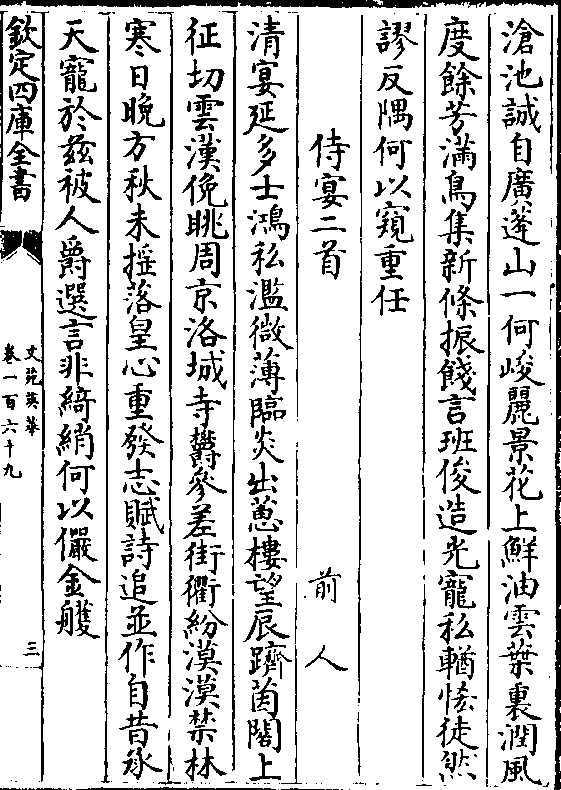 滄池誠自廣蓬山一何峻麗景花上鮮油雲葉裏潤風
度餘芳滿鳥集新條振餞言班俊造光寵私輶恡徒然
謬反隅何以窺重任
侍宴二首 前人
清宴延多士鴻私濫微薄臨炎出蕙樓望辰躋菌閣上
征切雲漢俛眺周京洛城寺鬱參差街衢紛漠漠禁林
寒日晚方秋未揺落皇心重發志賦詩追並作自昔承
天寵於兹被人爵選言非綺綃何以儷金艧
欽定四庫全書
文苑英華
卷一百六十九
三